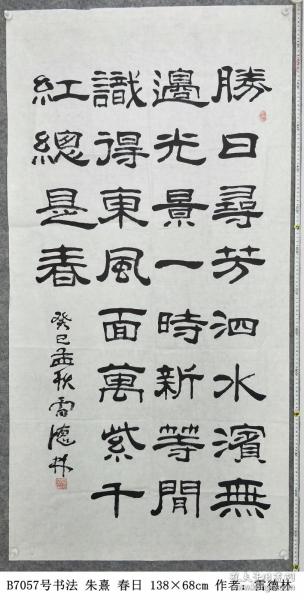 勝日尋芳泗水濱無
邊光景一時新等間
識得東風面萬紫千
紅總是春
癸巳孟秋雷德林
B7057号书法 朱熹 春日 138×68cm 作者：雷德林